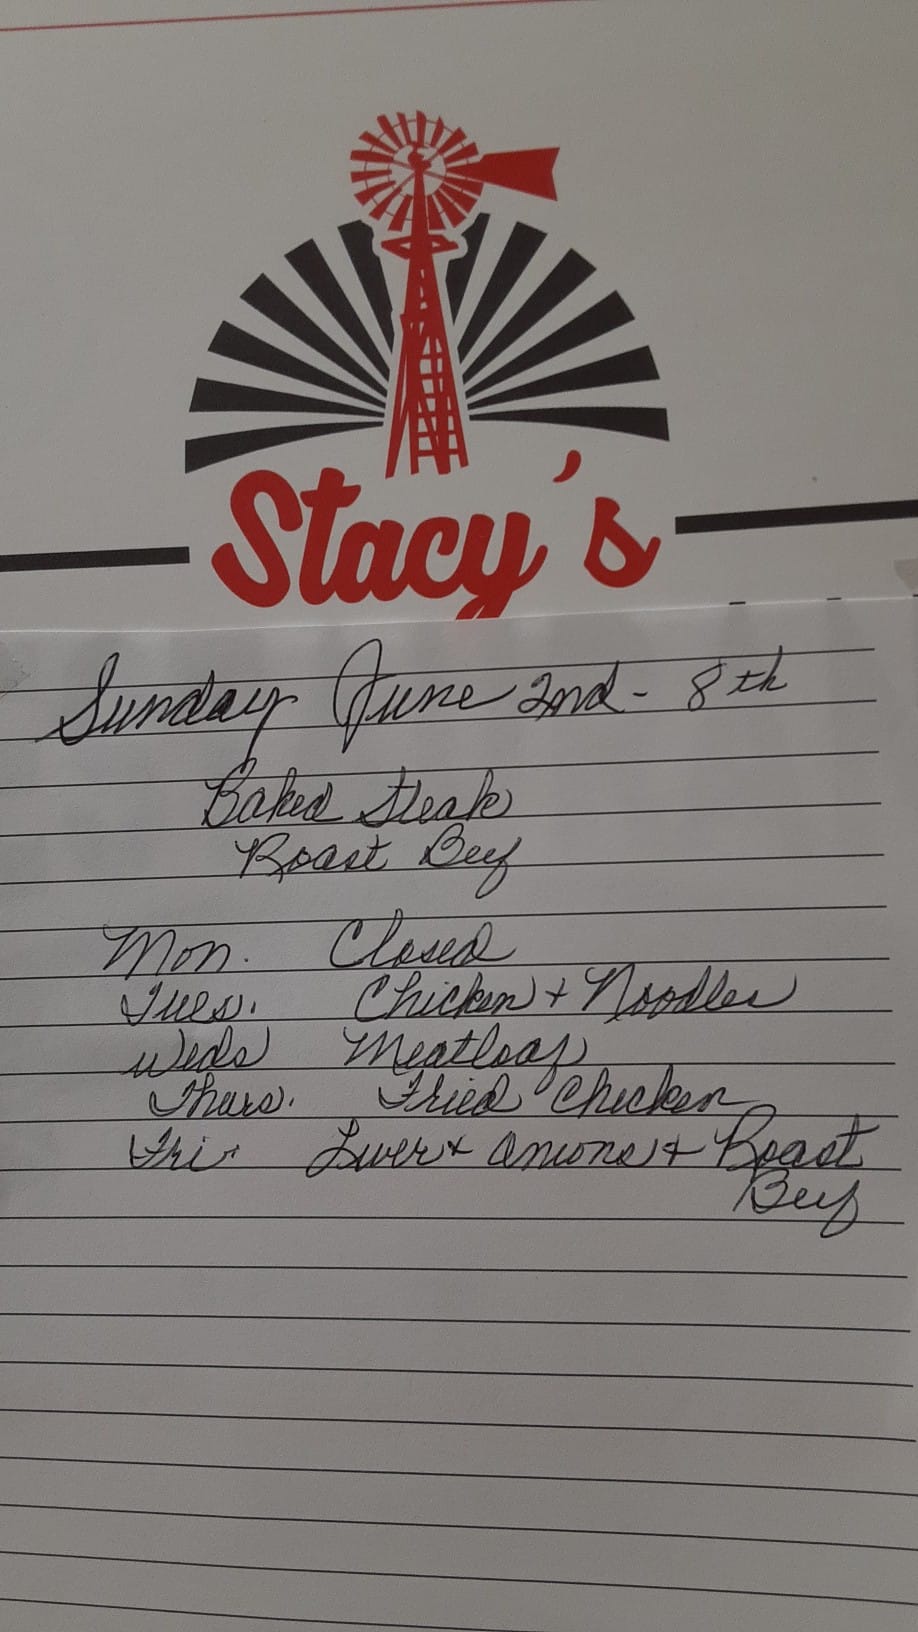 Stacy's
Sunday June 2nd - 8th
Baked Steak
Roast Beef
Mon. Closed
Tues. Chicken + Noodles
Weds Meatloaf
Thurs. Fried Chicken
Fri. Liver + Onions + Roast
Beef